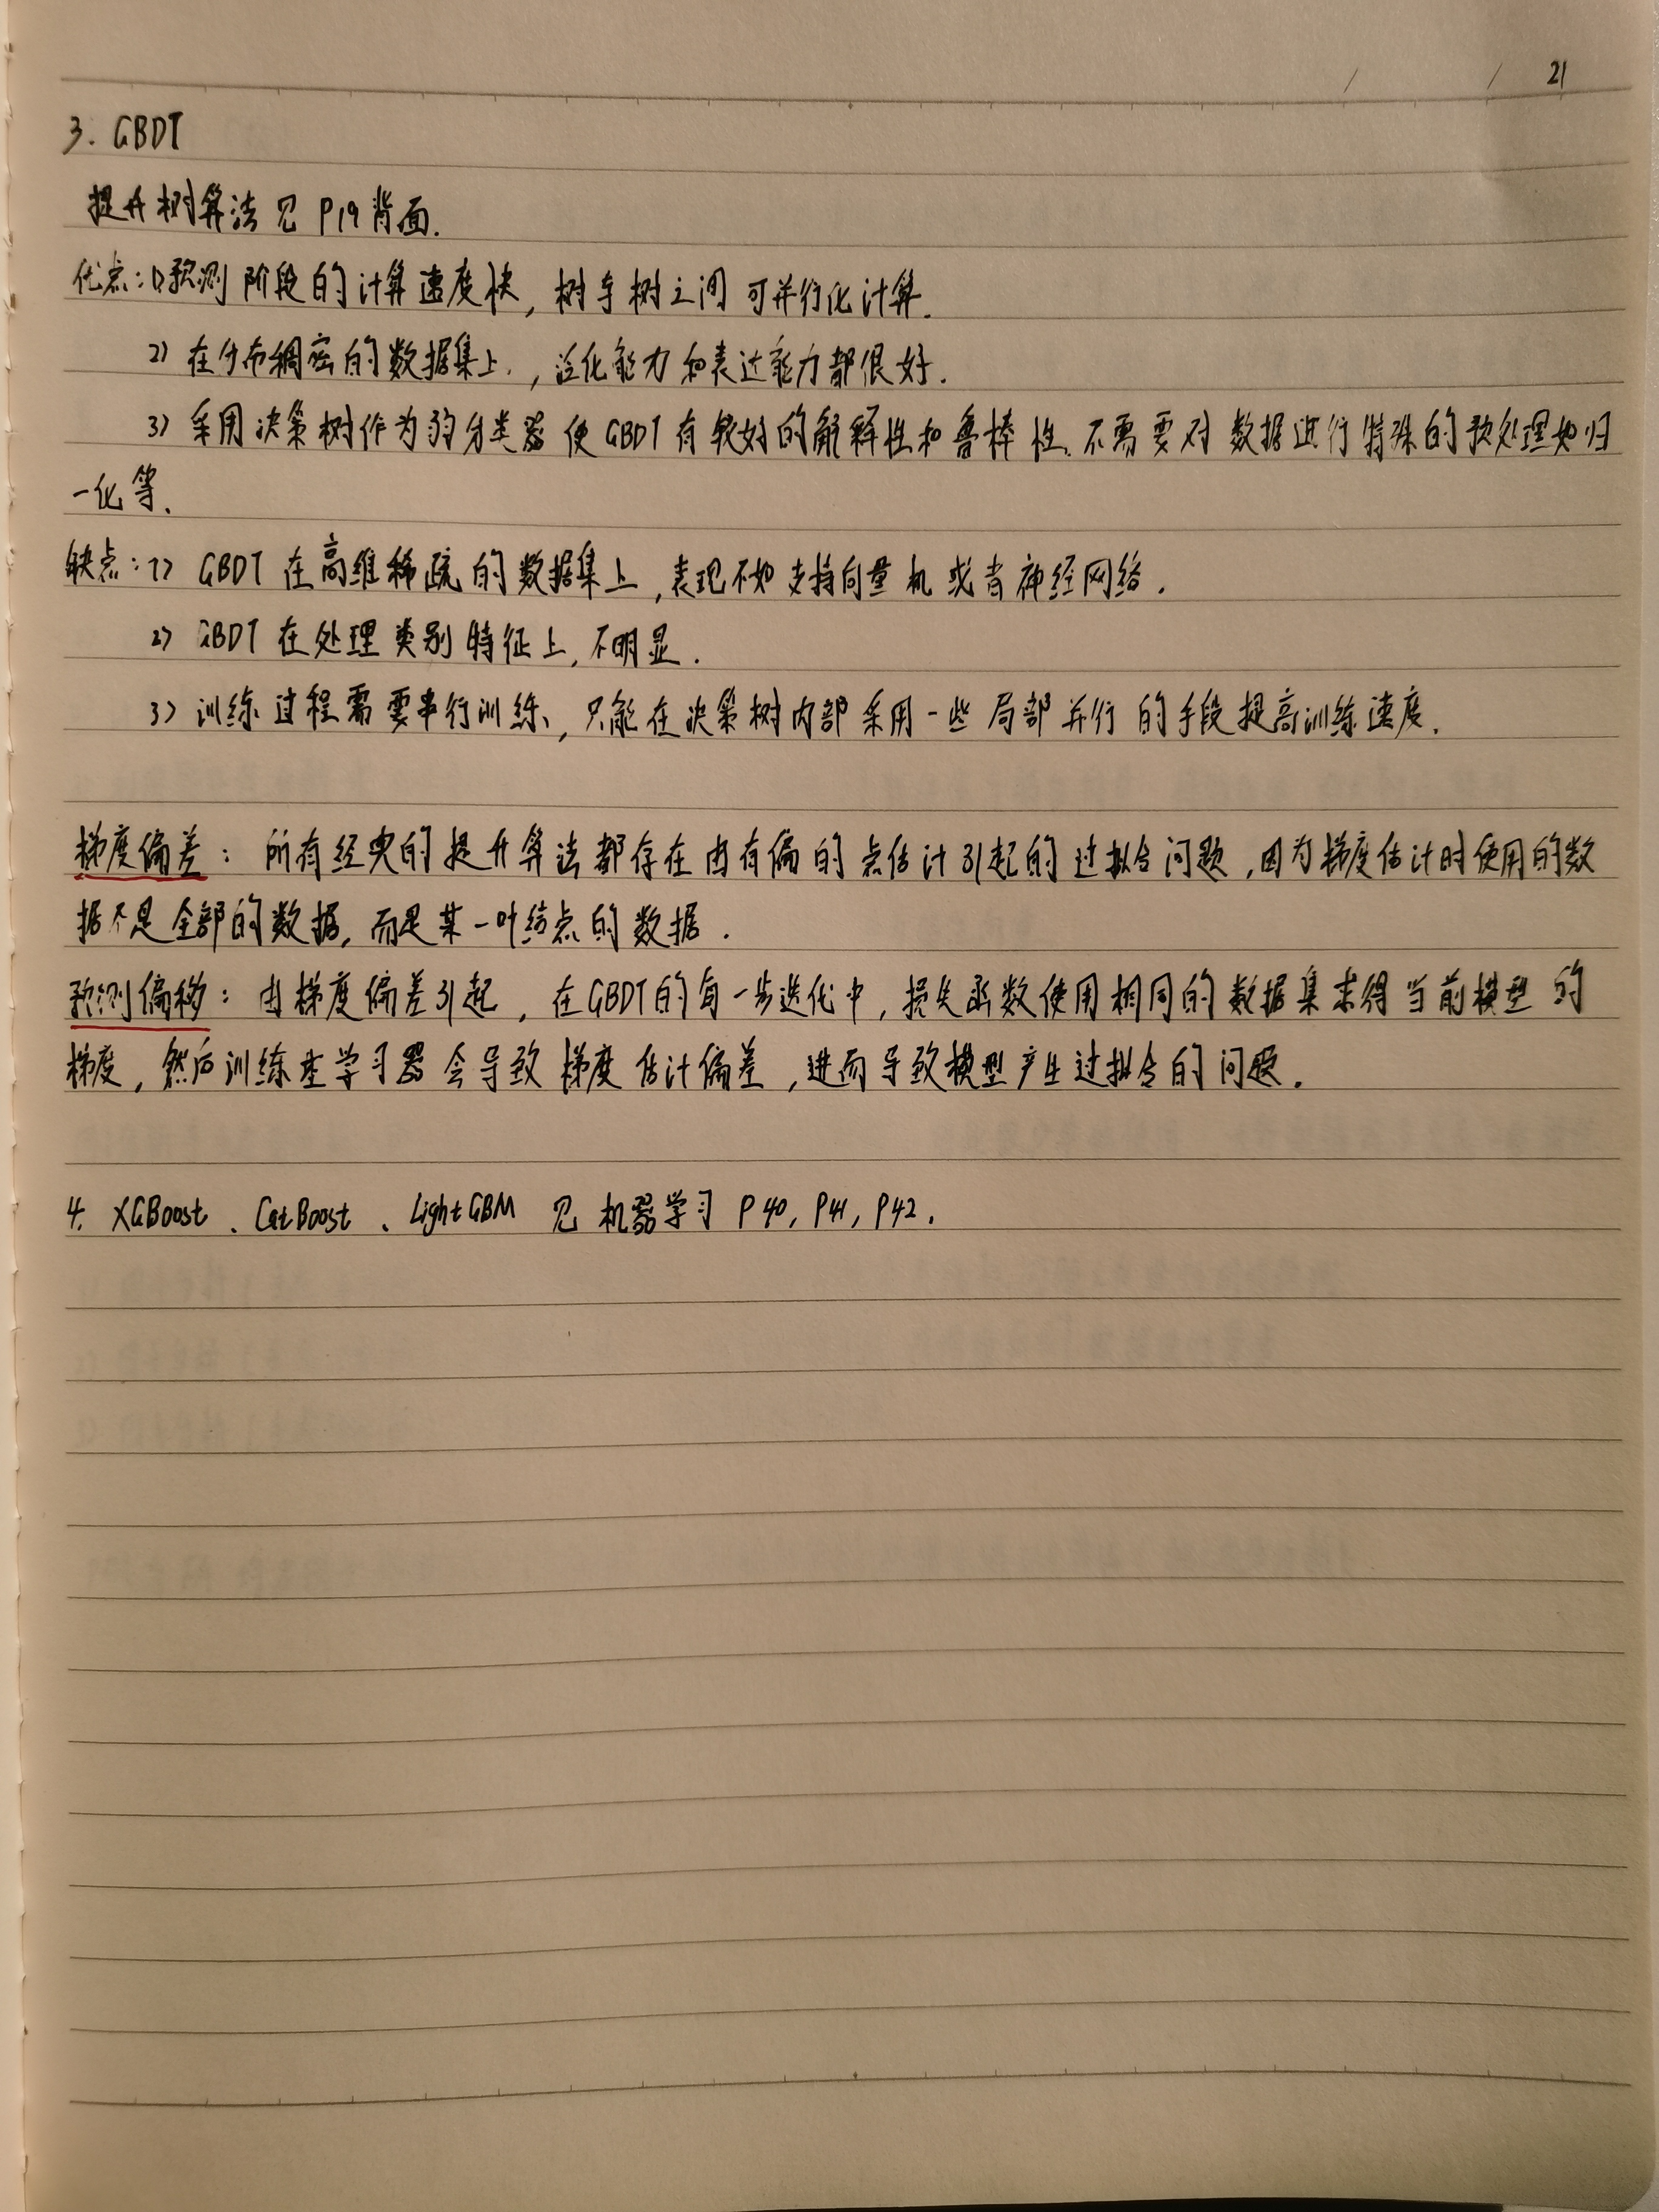 21
3. GBDT
提升树算法见 P19背面.
优点:1)预测阶段的计算速度快,树与树之间可并行化计算.
2) 在分布稠密的数据集上,泛化能力和表达能力都很好.
3) 采用决策树作为弱分类器使GBDT有较好的解释性和鲁棒性.不需要对数据进行特殊的预处理如归
一化等.
缺点:1) GBDT在高维稀疏的数据集上,表现不如支持向量机或者神经网络.
2) GBDT在处理类别特征上,不明显.
3) 训练过程需要串行训练、,只能在决策树内部采用一些局部并行的手段提高训练速度.
梯度偏差: 所有经典的提升算法都存在由有偏的点估计引起的过拟合问题,因为梯度估计时使用的数
据不是全部的数据,而是某一叶结点的数据.
预测偏移: 由梯度偏差引起,在GBDT的每一步迭代中,损失函数使用相同的数据集求得当前模型的
梯度,然后训练基学习器会导致梯度估计偏差,进而导致模型产生过拟合的问题.
4. XGBoost、CatBoost、LightGBM 见机器学习 P40, P41, P42.